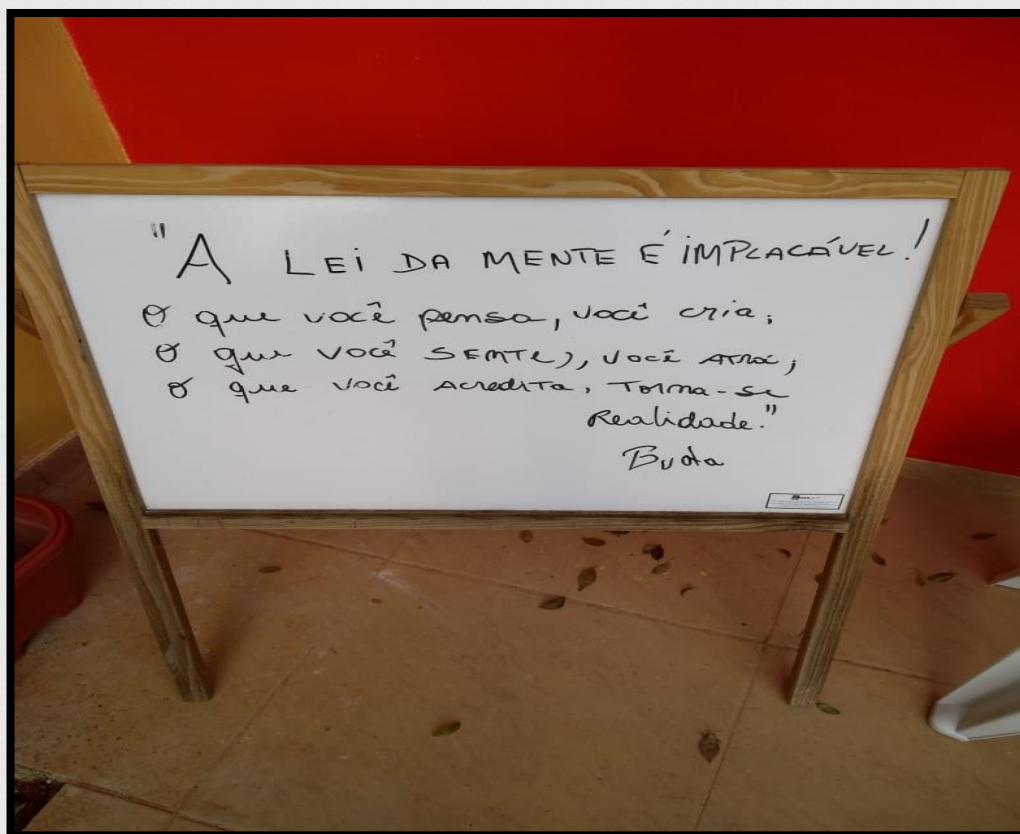 "A LEi DA MENTE É iMPLACÁVEL!
O que você pensa, você cria;
O que você SENTE, você ATRAi;
O que você AcreditA, Torna-se
Realidade."
Buda